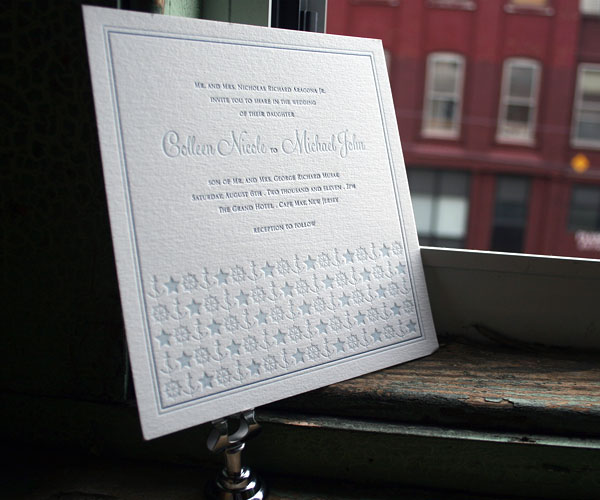 Mr. and Mrs. Nicholas Richard Aragona Jr.
invite you to share in the wedding
of their daughter
Colleen Nicole to Michael John
son of Mr. and Mrs. George Richard
Saturday, August 6th . Two thousand and eleven . 7pm
The Grand Hotel . Cape May, New Jersey
reception to follow